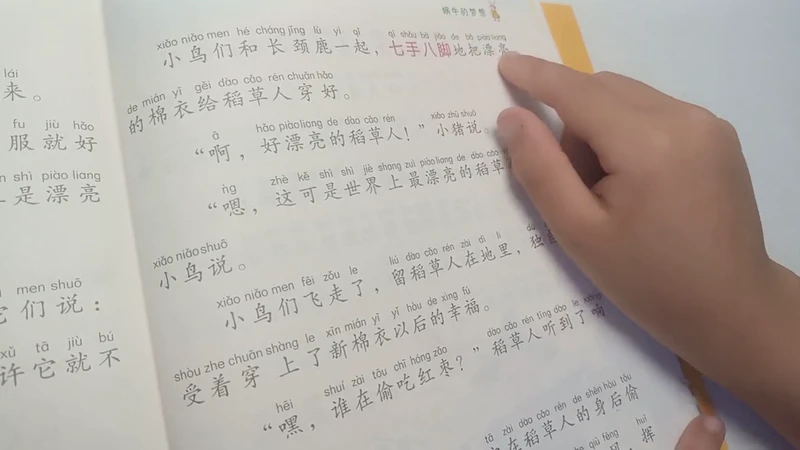 蜗牛的梦想
lái
来。
fu jiù hǎo
服就好
shì piào liang
是漂亮
men shuō
它们说：
xǔ tā jiù bú
许它就不
xiǎo niǎo men hé cháng jǐng lù yì qǐ qī shǒu bā jiǎo de bǎ piào liang
小鸟们和长颈鹿一起，七手八脚地把漂亮
de mián yī gěi dào cǎo rén chuān hǎo
的棉衣给稻草人穿好。
à hǎo piào liang de dào cǎo rén xiǎo zhū shuō
“啊，好漂亮的稻草人！”小猪说。
ǹg zhè kě shì shì jiè shang zuì piào liang de dào cǎo
“嗯，这可是世界上最漂亮的稻草
xiǎo niǎo shuō
小鸟说。
xiǎo niǎo men fēi zǒu le liú dào cǎo rén zài dì li dú
小鸟们飞走了，留稻草人在地里，独
shòu zhe chuān shàng le xīn mián yī yǐ hòu de xìng fú
受着穿上了新棉衣以后的幸福。
hēi shuí zài tōu chī hóng zǎo dào cǎo rén tīng dào le
“嘿，谁在偷吃红枣？”稻草人听到了
zài dào cǎo rén de shēn hòu tōu
在稻草人的身后偷
huī
挥